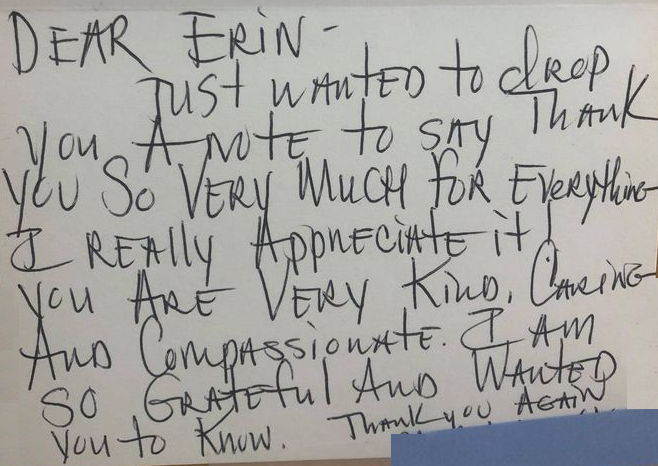 DEAR ERIN-
JUST WANTED to drop
you A NOTE to SAY THANK
you So VERY MUCH for Everything
I REALLY Appreciate it!
you ARE VERY KIND, CARING
AND Compassionate. I AM
SO GRATEful AND WANTED
you to Know. THANK you AGAIN